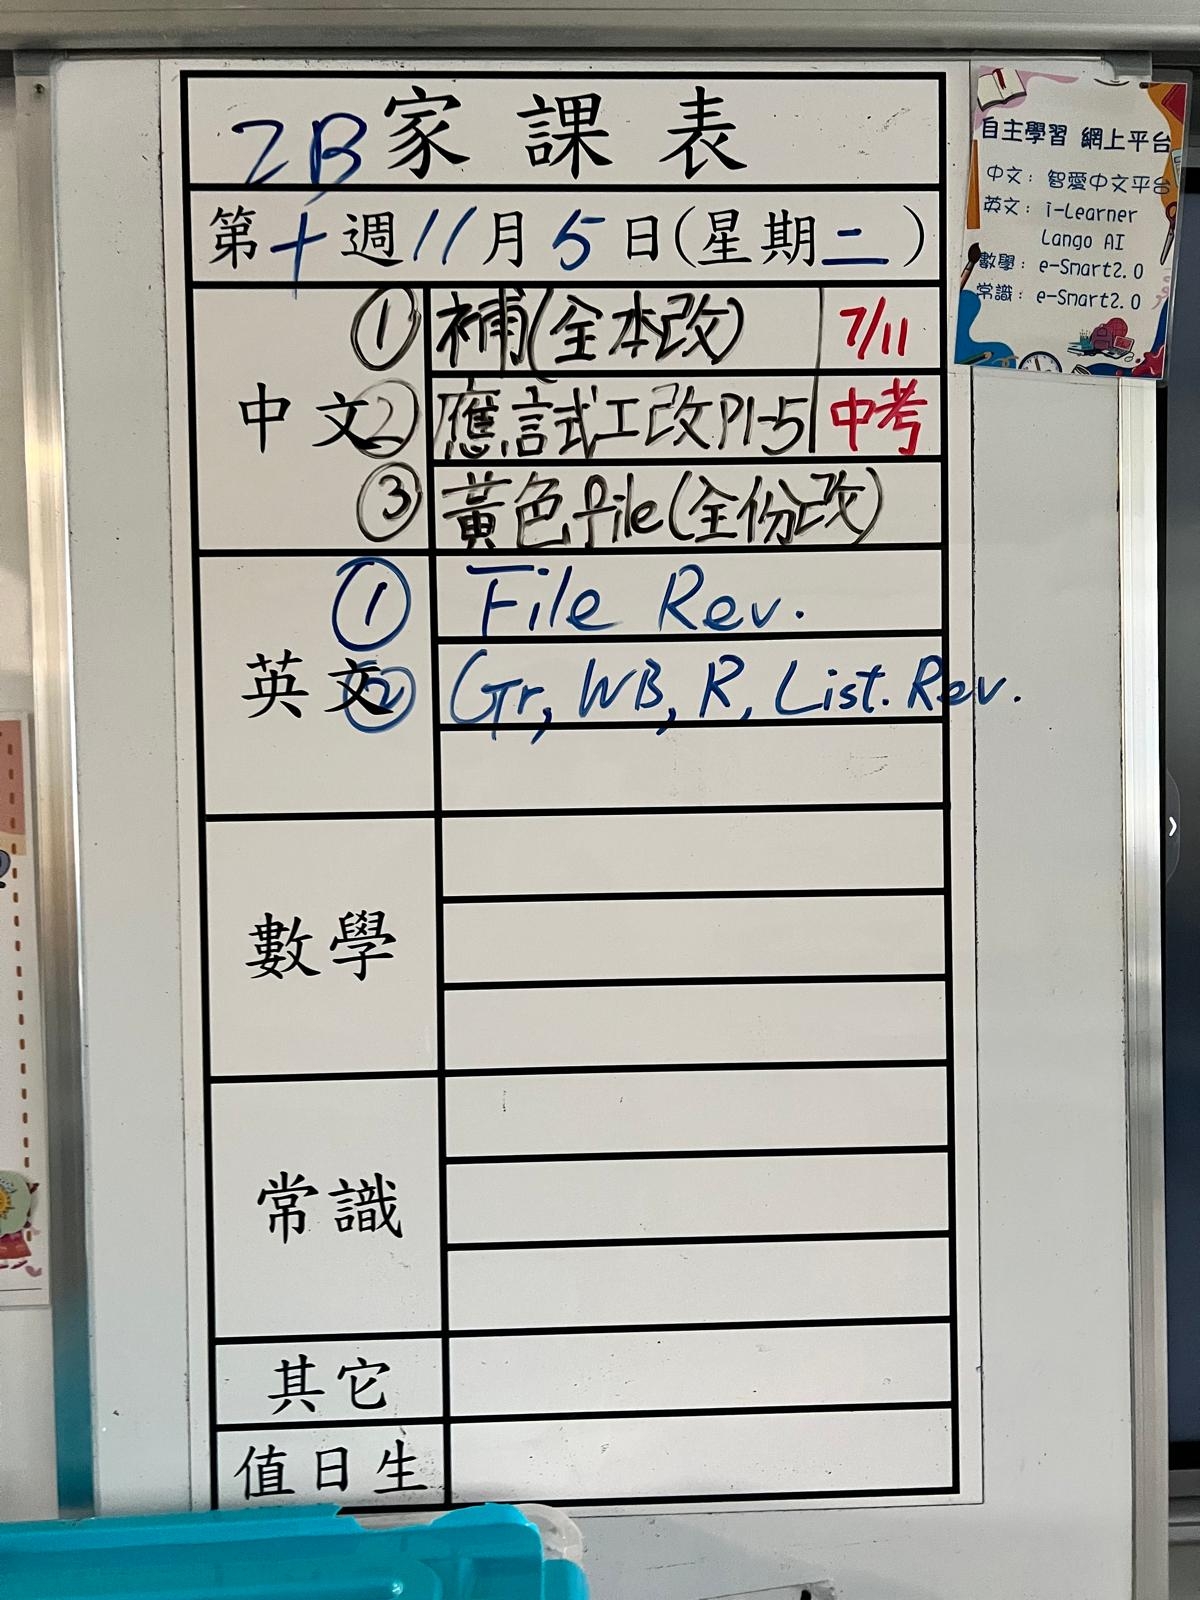 2B 家課表
第十週 11月5日(星期二)
中文
① 補(全本改) 7/11
② 應試工改P1-5 中考
③ 黃色file(全份改)
英文
① File Rev.
② Gr, WB, R, List. Rev.
數學
常識
其它
值日生
自主學習 網上平台
中文：智愛中文平台
英文：i-Learner
Lango AI
數學：e-Smart2.0
常識：e-Smart2.0